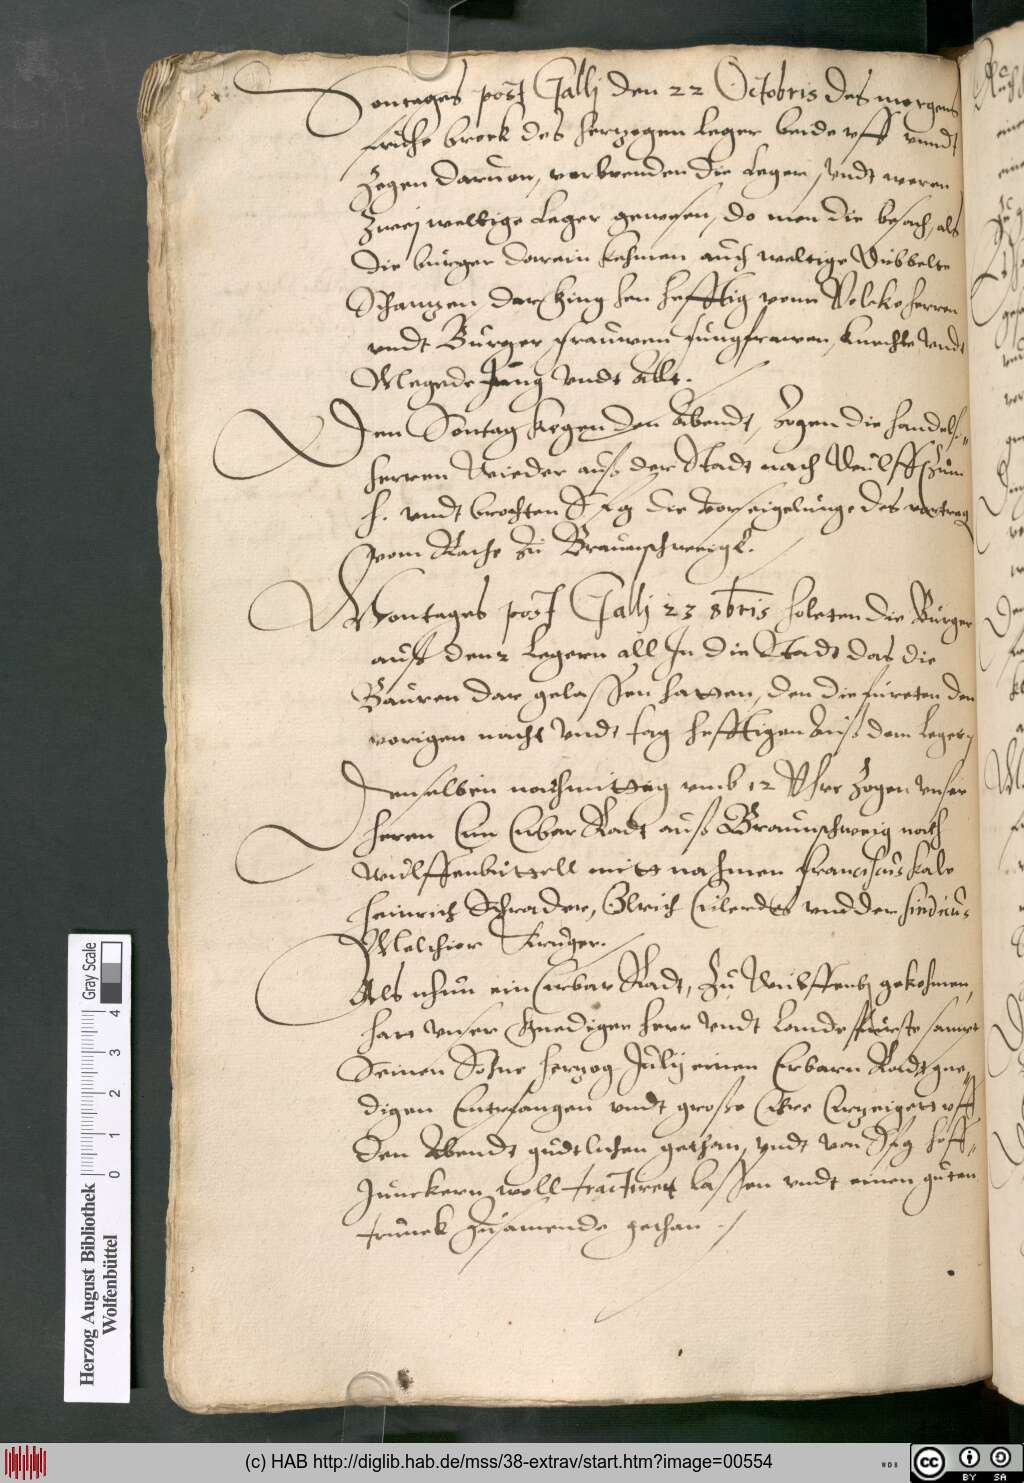 Sontages post Galli den 22 Octobris des morgens
fruhe brock des herzogen leger beide uff vnndt
zogen daruon, verbrenden die leger, vndt weren
zwej weltige Leger gewesen, do men die besach, als
die burger darein kehmen auch weltige dubbelte
Schantzen, dar ging hen hefftig vom Volcke herren
vndt Burger frauwen Jungfrawen, knechte vndt
Megede Jung vndt Alt.
Den Sontag kegen den Abendt, zogen die handels
herren wieder auß der Stadt nach Wulff zum
h. vndt brochten S f g die vorseigelunge des vertrag
vom Rathe zu Braunschweigk.
Montages post Galli 23 8bris holeten die Burger
auß den 2 legern all In die Stadt das die
Bauren dar gelassen hatten, den die fureten den
vorigen nacht vndt tag hefftigen auß dem leger,
Denselben nachmittag vmb 12 Vhr zogen vnser
heren Ein Erbar Radt auß Braunschweig nach
Wulffenbuttell mitt nahmen Franciscus Kale
Heinrich Schrader, Olrich Eilerdes vnd der sindicus
Melchior Kruger.
Als nhun ein Erbar Radt, zu Wulffenb gekohmen,
hatt vnser gnediger herr vndt Landesfurste sampt
Seinen Sohne herzog July einen Erbarn Radt gne
digen Entfangen vndt große Ehre Erzeigett vff
den Abendt gudtlichen gethan, vndt von S f g hoff
Junckern woll tractiret lassen vndt einen guten
trunck zusamende gethan
Gray Scale
0 1 2 3 4
Herzog August Bibliothek
Wolfenbüttel
(c) HAB http://diglib.hab.de/mss/38-extrav/start.htm?image=00554
WDB
cc BY SA